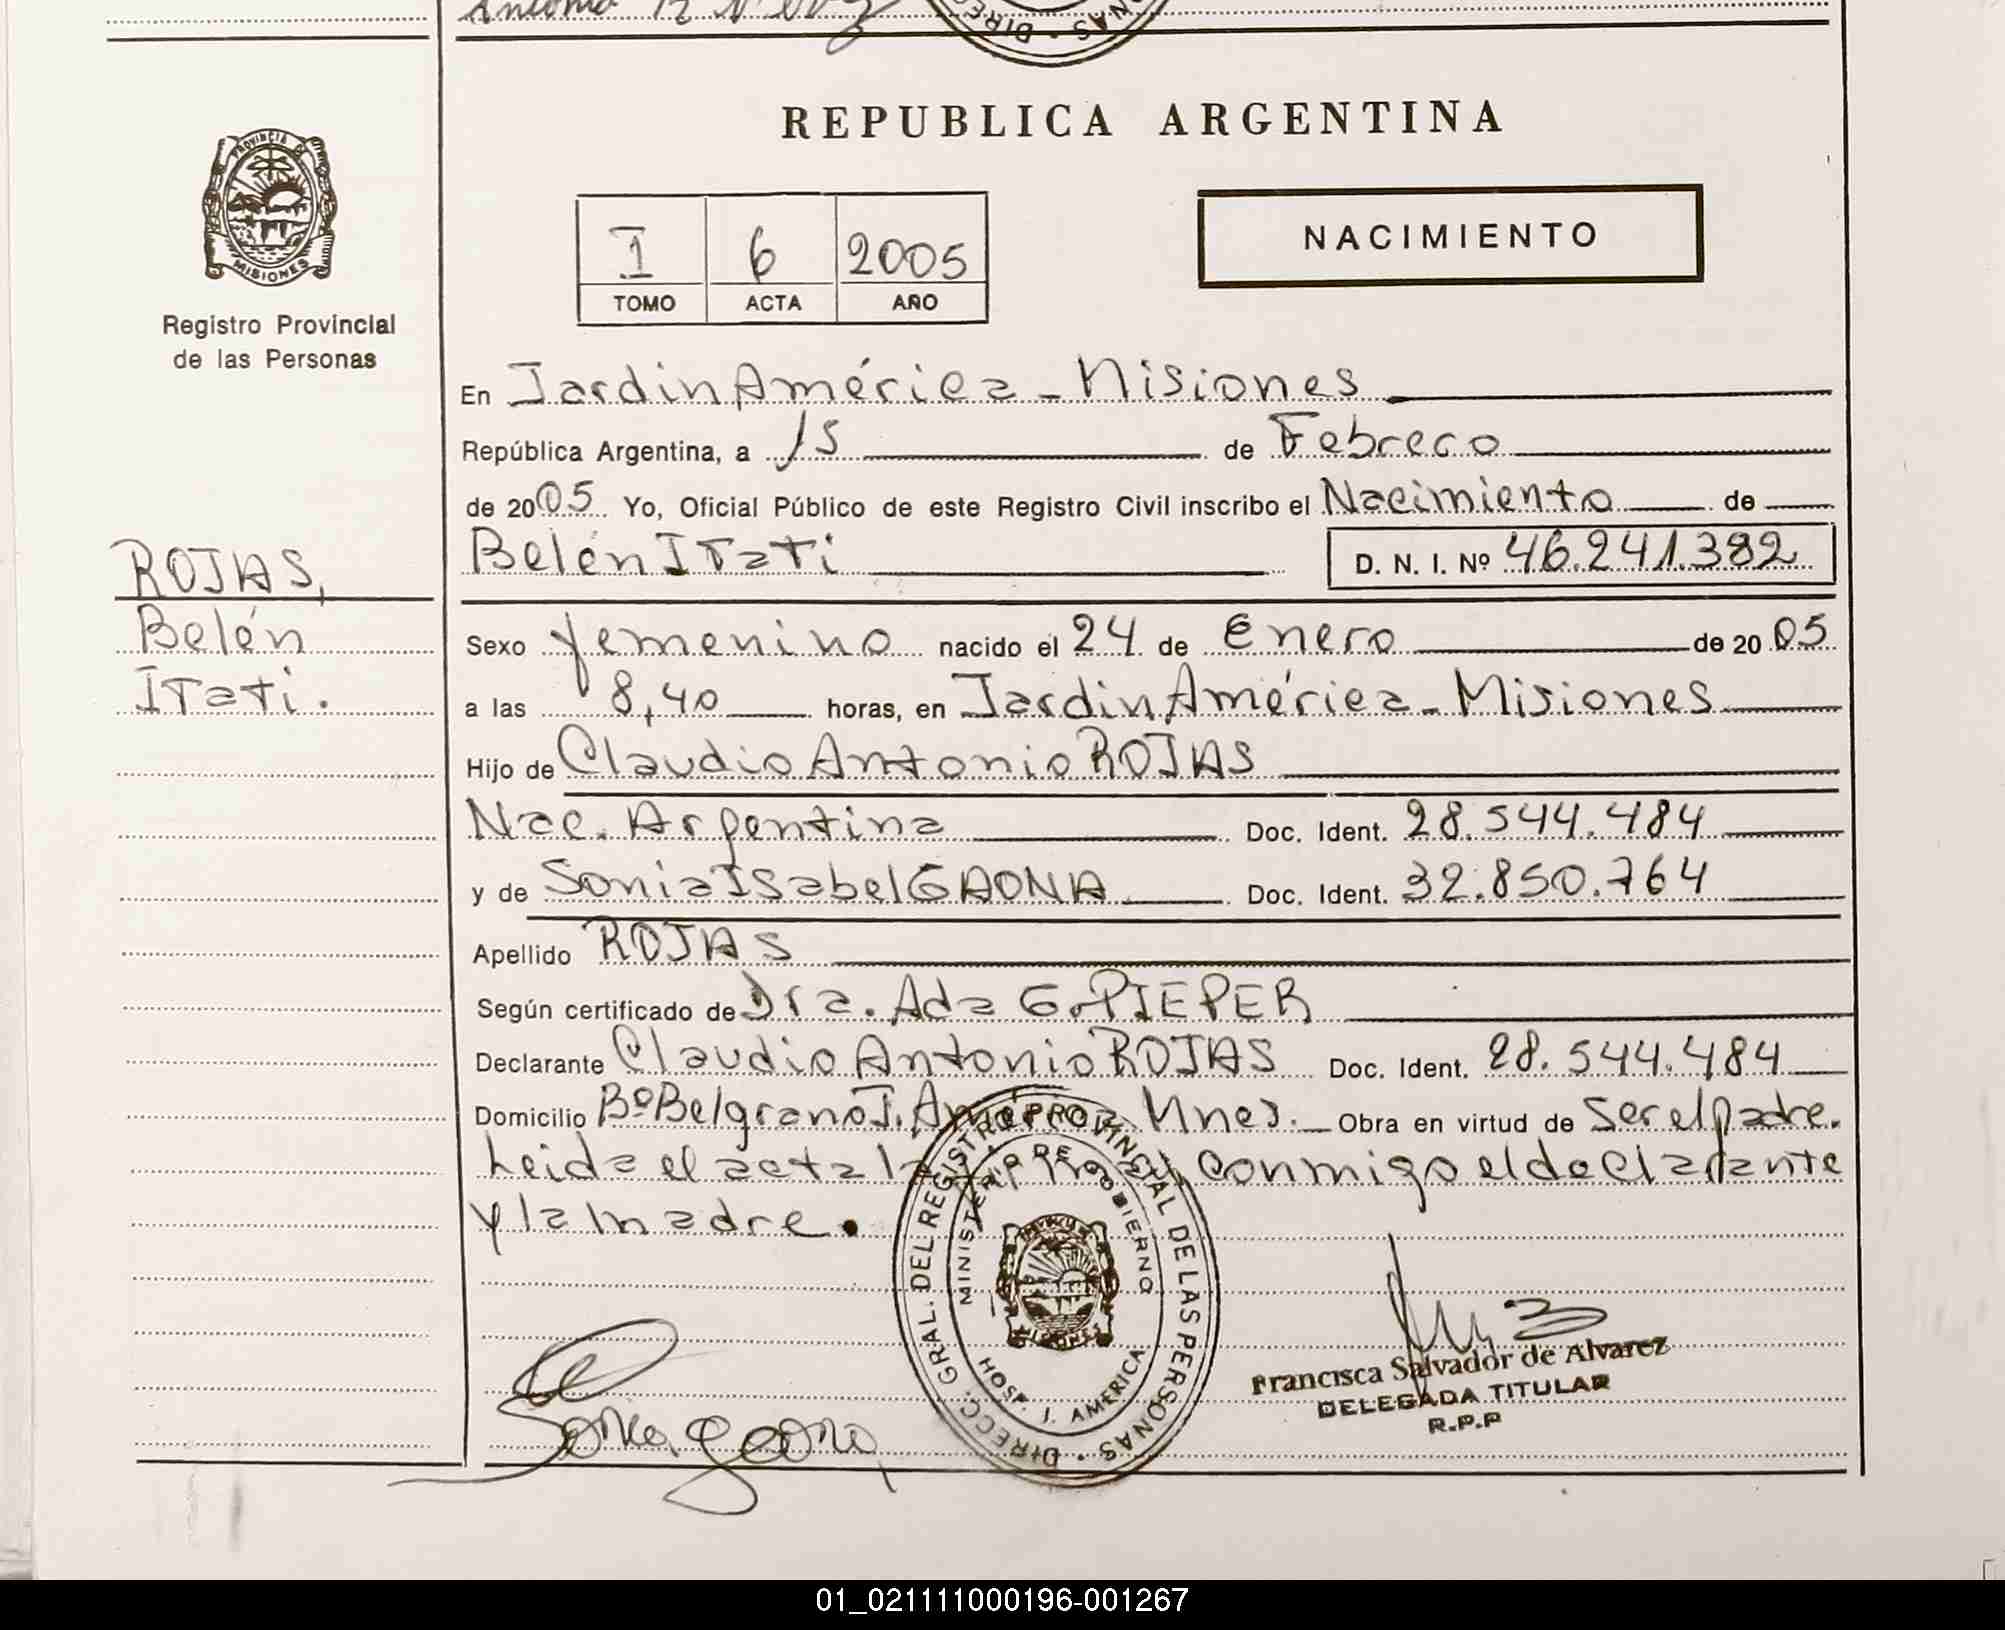 REPUBLICA ARGENTINA
PROVINCIA DE
MISIONES
Registro Provincial
de las Personas
I 6 2005
TOMO ACTA AÑO
NACIMIENTO
En Jardin América - Misiones
República Argentina, a 15 de Febrero
de 2005 Yo, Oficial Público de este Registro Civil inscribo el Nacimiento de
Belén Itati D. N. I. Nº 46.241.392
ROJAS,
Belén
Itati.
Sexo femenino nacido el 24 de Enero de 2005
a las 8,40 horas, en Jardin América - Misiones
Hijo de Claudio Antonio ROJAS
Nac. Argentina Doc. Ident. 28.544.484
y de Sonia Isabel GAONA Doc. Ident. 32.850.764
Apellido ROJAS
Según certificado de Dra. Ada G. PIEPER
Declarante Claudio Antonio ROJAS Doc. Ident. 28.544.484
Domicilio Bº Belgrano J. América Mnes. Obra en virtud de ser el padre.
Leida el acta la conmigo el declarante
y la madre.
DIRECC. GRAL. DEL REGISTRO PROVINCIAL DE LAS PERSONAS
MINISTERIO DE GOBIERNO
MISIONES
HOSP. J. AMERICA
Sonia gaona
Francisca Salvador de Alvarez
DELEGADA TITULAR
R.P.P
01_021111000196-001267